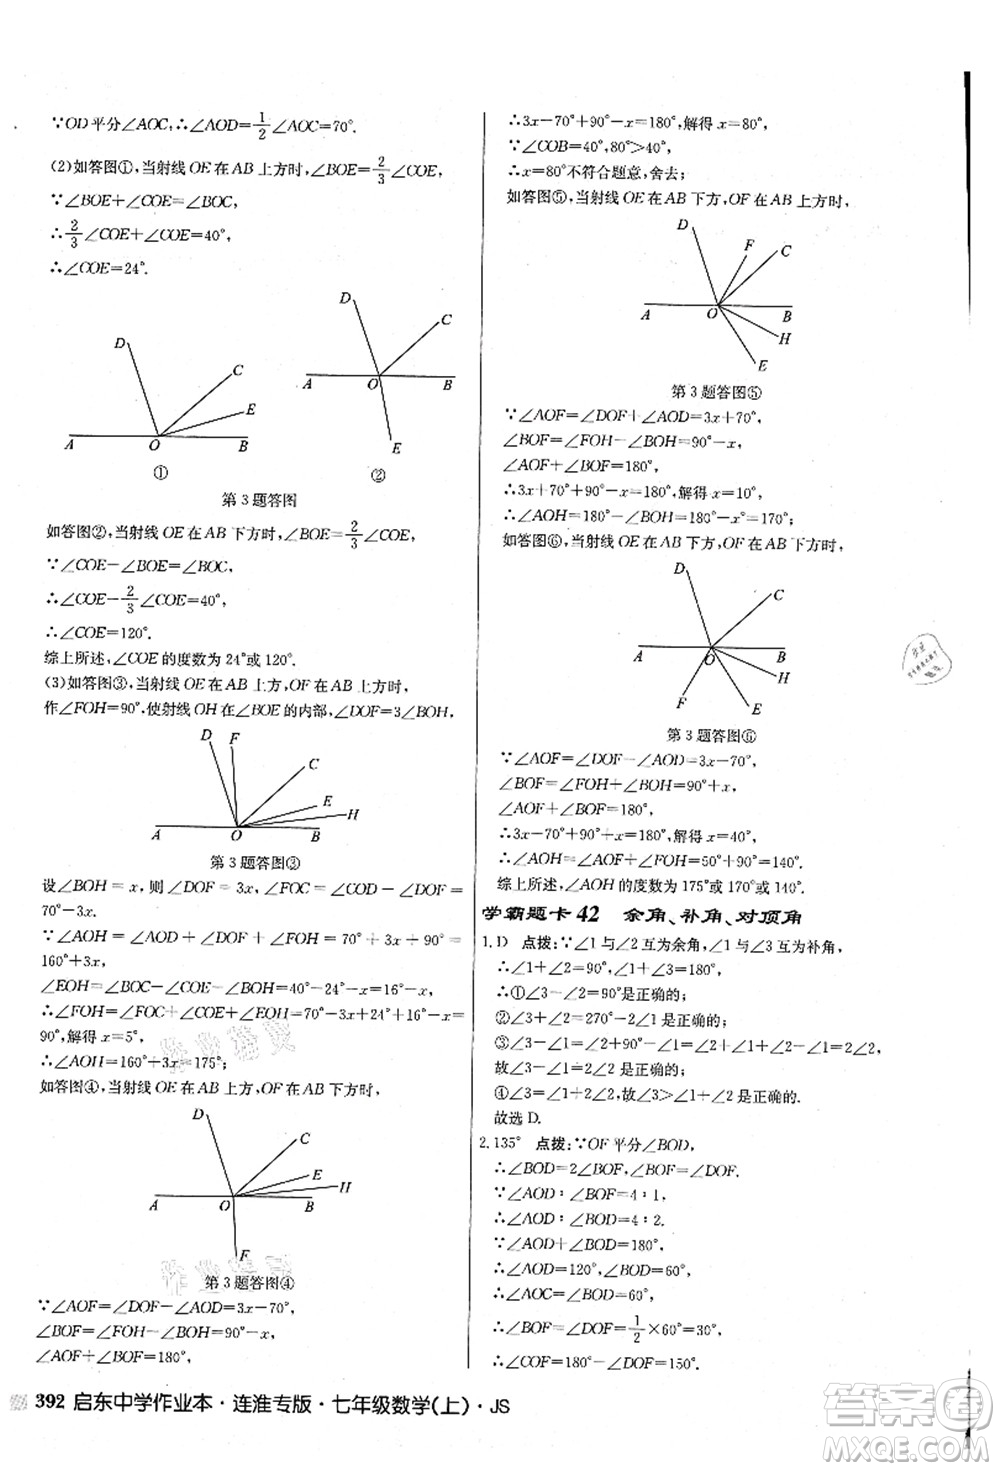 ∵OD平分∠AOC,∴∠AOD=1/2∠AOC=70°.
(2)如答图①,当射线OE在AB上方时,∠BOE=2/3∠COE,
∵∠BOE+∠COE=∠BOC,
∴2/3∠COE+∠COE=40°,
∴∠COE=24°.
D
C
E
A
O
B
①
D
C
A
O
B
E
②
第3题答图
如答图②,当射线OE在AB下方时,∠BOE=2/3∠COE,
∵∠COE-∠BOE=∠BOC,
∴∠COE-2/3∠COE=40°,
∴∠COE=120°.
综上所述,∠COE的度数为24°或120°.
(3)如答图③,当射线OE在AB上方,OF在AB上方时,
作∠FOH=90°,使射线OH在∠BOE的内部,∠DOF=3∠BOH,
D
F
C
E
H
A
O
B
第3题答图③
设∠BOH=x,则∠DOF=3x,∠FOC=∠COD-∠DOF=
70°-3x.
∵∠AOH=∠AOD+∠DOF+∠FOH=70°+3x+90°=
160°+3x,
∠EOH=∠BOC-∠COE-∠BOH=40°-24°-x=16°-x,
∴∠FOH=∠FOC+∠COE+∠EOH=70°-3x+24°+16°-
x=90°,解得x=5°,
∴∠AOH=160°+3x=175°;
如答图④,当射线OE在AB上方,OF在AB下方时,
D
C
E
H
A
O
B
F
第3题答图④
∵∠AOF=∠DOF-∠AOD=3x-70°,
∠BOF=∠FOH-∠BOH=90°-x,
∠AOF+∠BOF=180°,
∴3x-70°+90°-x=180°,解得x=80°,
∵∠COB=40°,80°>40°,
∴x=80°不符合题意,舍去;
如答图⑤,当射线OE在AB下方,OF在AB上方时,
D
F
C
A
O
B
H
E
第3题答图⑤
∵∠AOF=∠DOF+∠AOD=3x+70°,
∠BOF=∠FOH-∠BOH=90°-x,
∠AOF+∠BOF=180°,
∴3x+70°+90°-x=180°,解得x=10°,
∴∠AOH=180°-∠BOH=180°-x=170°;
如答图⑥,当射线OE在AB下方,OF在AB下方时,
D
C
A
O
B
H
F
E
第3题答图⑥
∵∠AOF=∠DOF-∠AOD=3x-70°,
∠BOF=∠FOH+∠BOH=90°+x,
∠AOF+∠BOF=180°,
∴3x-70°+90°+x=180°,解得x=40°,
∴∠AOH=∠AOF+∠FOH=50°+90°=140°.
综上所述,∠AOH的度数为175°或170°或140°.
学霸题卡42 余角、补角、对顶角
1.D 点拨:∵∠1与∠2互为余角,∠1与∠3互为补角,
∴∠1+∠2=90°,∠1+∠3=180°,
∴①∠3-∠2=90°是正确的;
②∠3+∠2=270°-2∠1是正确的;
③∠3-∠1=180°-2∠1=2∠2,
故∠3=∠1+2∠2是正确的;
④∠3-∠1=2∠2,故∠3>∠1+∠2是正确的.
故选D.
2.135° 点拨:∵OF平分∠BOD,
∴∠BOD=2∠BOF=2∠DOF.
∵∠AOD:∠BOF=4:1,
∴∠AOD:∠BOD=4:2.
∵∠AOD=120°,∠BOD=60°,
∴∠AOC=∠BOD=60°,
∴∠BOF=∠DOF=1/2×60°=30°,
∴∠COF=180°-∠DOF=150°.
392 启东中学作业本·连淮专版·七年级数学(上)·JS
答案圈
MXQE.COM